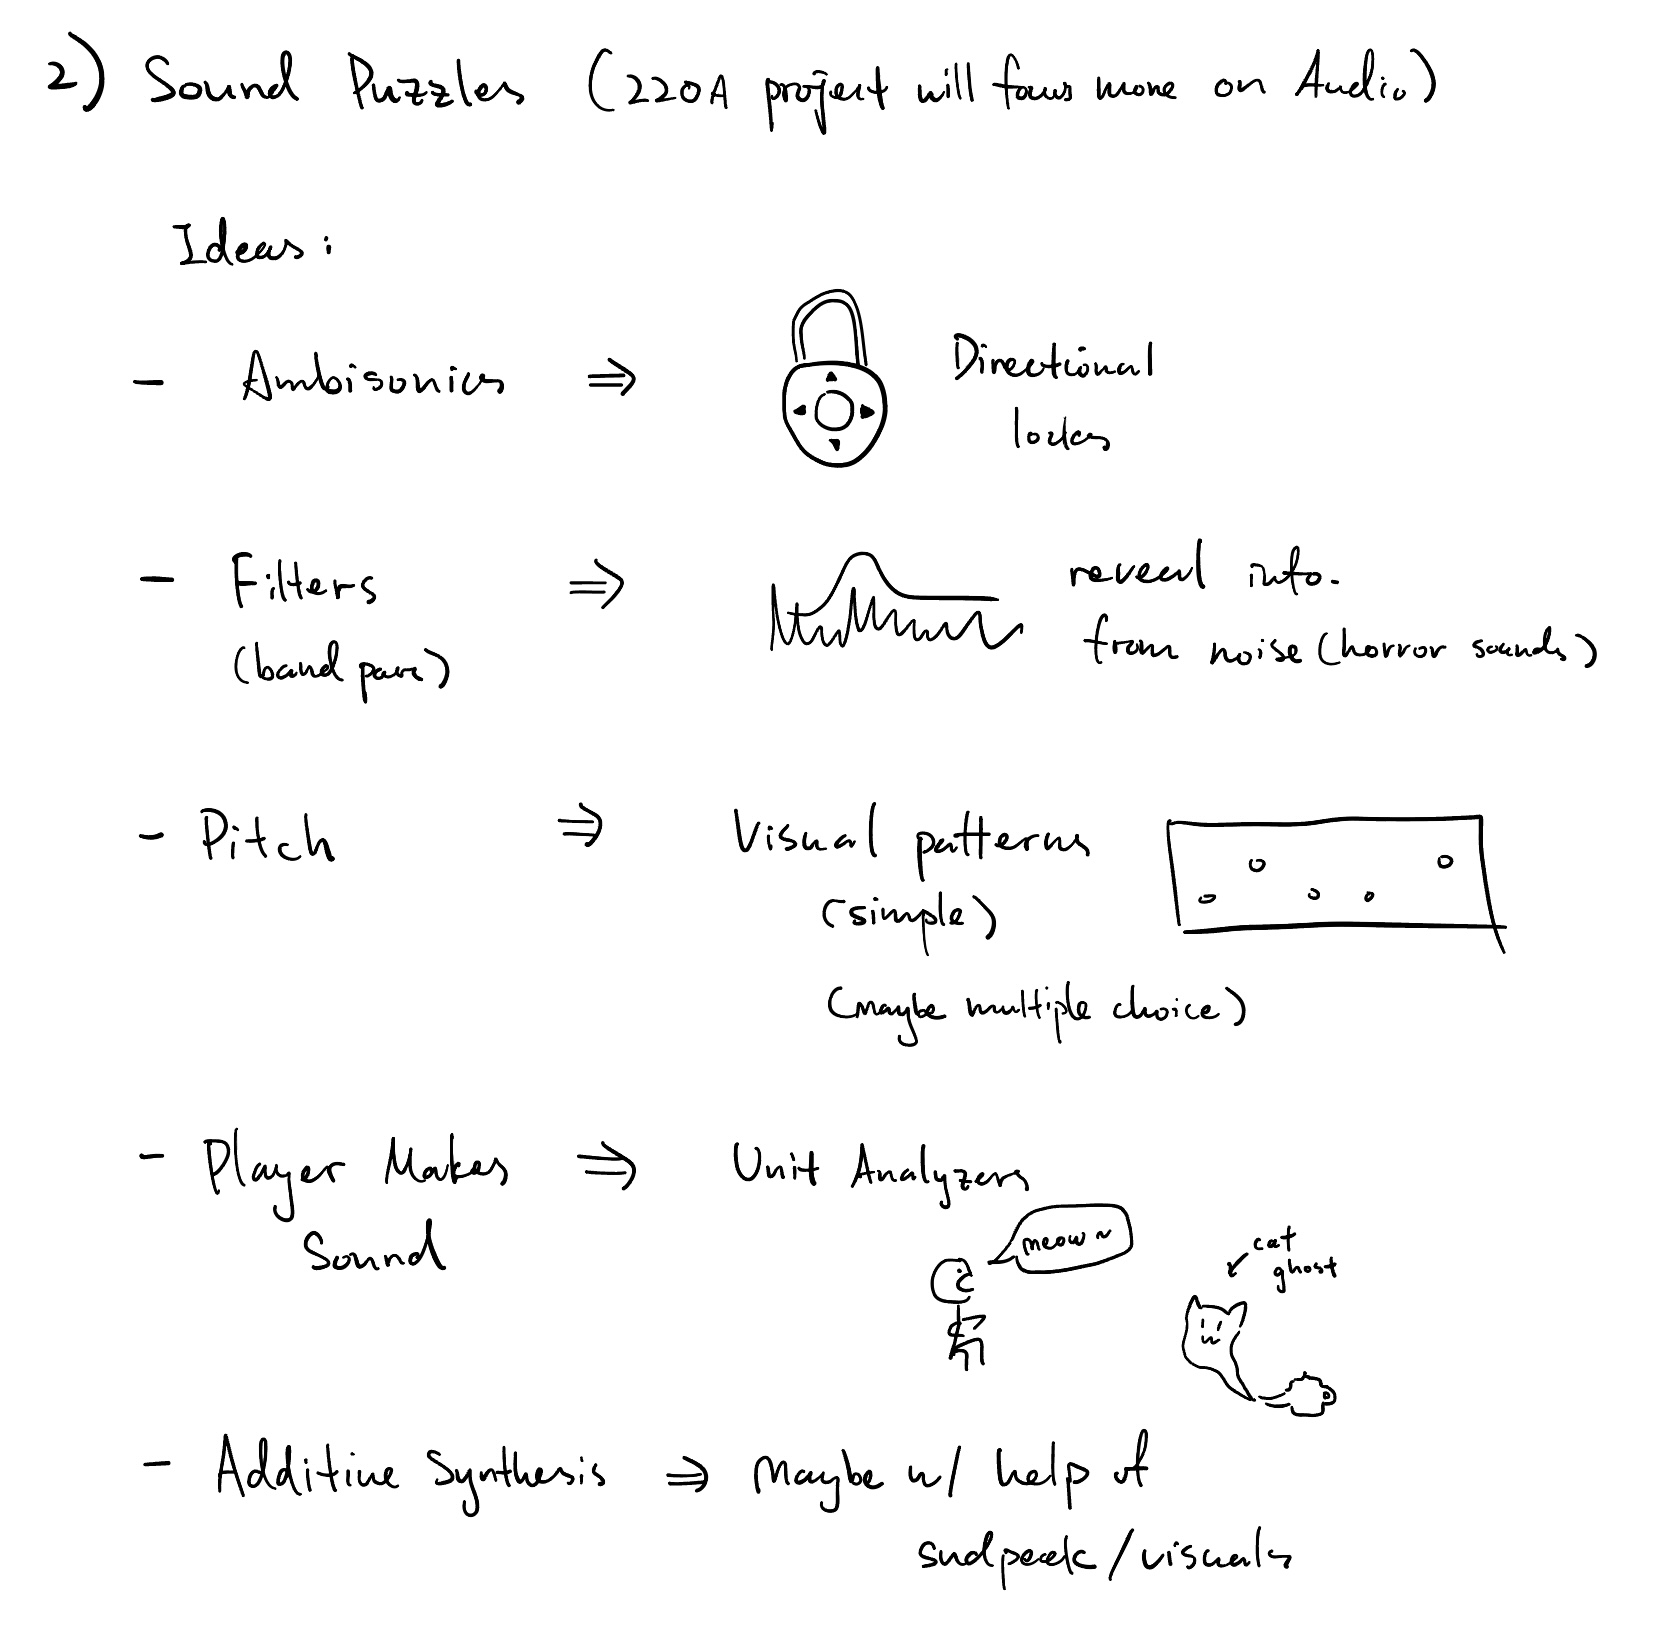 2) Sound Puzzles (220A project will focus more on Audio)
Ideas:
- Ambisonics ⇒ Directional
locks
- Filters ⇒ reveal info.
(band pass) from noise (horror sounds)
- Pitch ⇒ Visual patterns
(simple)
(maybe multiple choice)
- Player Makes ⇒ Unit Analyzers
Sound
meow ~
cat
ghost
- Additive Synthesis ⇒ Maybe w/ help of
sndpeek / visuals